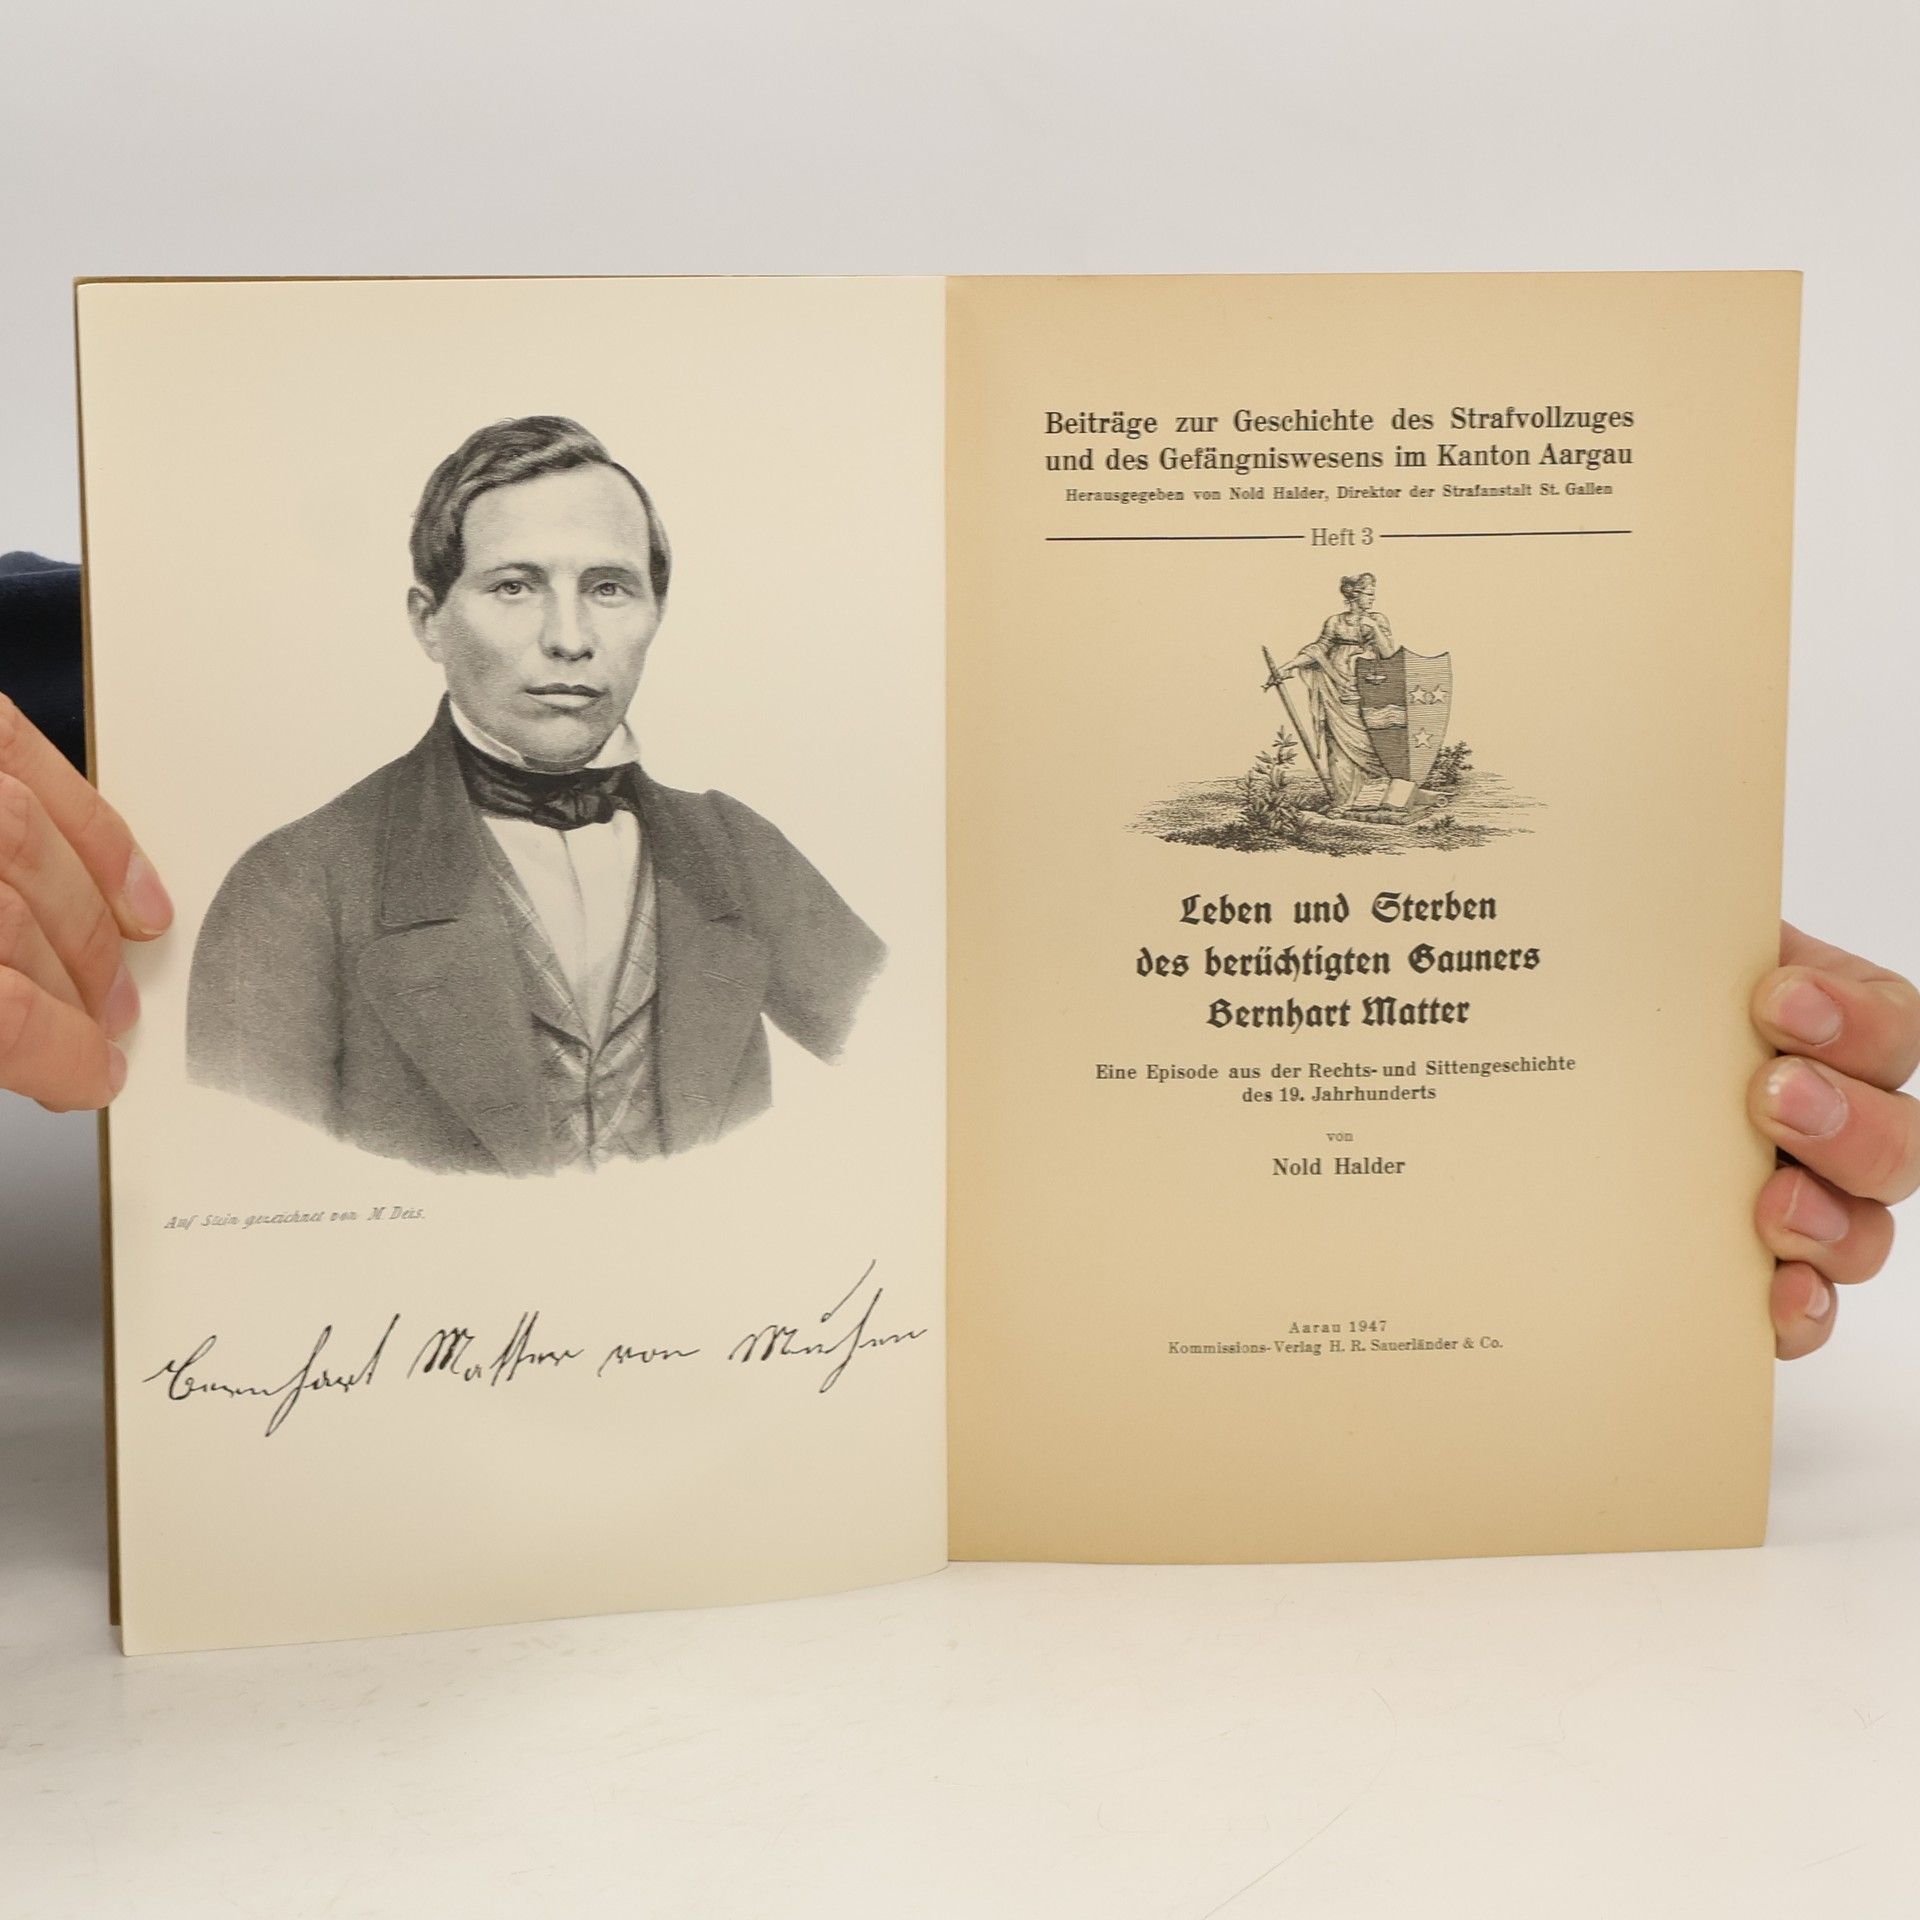 Auf Stein gezeichnet von M. Deis.
Bernhart Matter von Muhen
Beiträge zur Geschichte des Strafvollzuges
und des Gefängniswesens im Kanton Aargau
Herausgegeben von Nold Halder, Direktor der Strafanstalt St. Gallen
Heft 3
Leben und Sterben
des berüchtigten Gauners
Bernhart Matter
Eine Episode aus der Rechts- und Sittengeschichte
des 19. Jahrhunderts
von
Nold Halder
Aarau 1947
Kommissions-Verlag H. R. Sauerländer & Co.